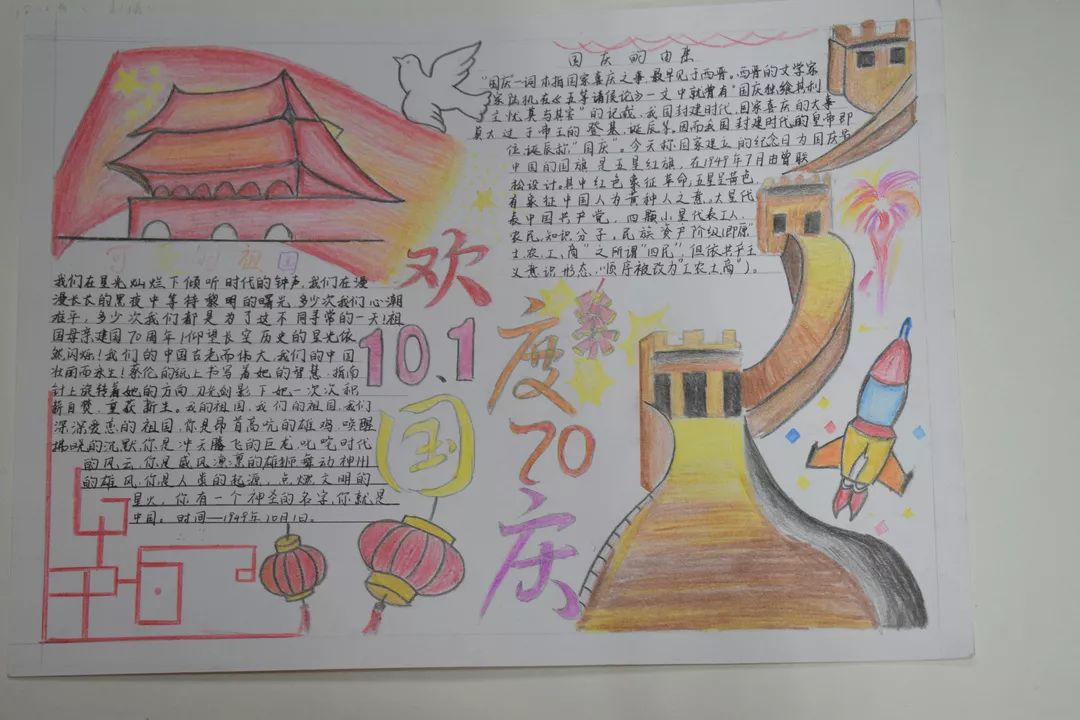 国庆的由来
"国庆"一词本指国家喜庆之事,最早见于西晋。西晋的文学家
陆机在《五等诸侯论》一文中就曾有"国庆独飨其利
主忧莫与其害"的记载,我国封建时代,国家喜庆的大事
莫大过于帝王的登基,诞辰等。因而我国封建时代的皇帝即
位诞辰称"国庆"。今天称国家建立的纪念日为国庆节
中国的国旗是五星红旗,在1949年7月由曾联
松设计。其中红色象征革命,五星呈黄色
有象征中国人为黄种人之意。大星代
表中国共产党,四颗小星代表工人、
农民,知识分子,民族资产阶级(即原"
士、农、工、商"之所谓"四民",但依共产主
义意识形态,顺序被改为"工农士商")。
可爱的祖国
我们在星光灿烂下倾听时代的钟声,我们在漫
漫长长的黑夜中等待黎明的曙光,多少次我们心潮
难平,多少次我们都是为了这不同寻常的一天!祖
国母亲建国70周年!仰望长空历史的星光依
然闪烁!我们的中国古老而伟大,我们的中国
壮丽而永生!蔡伦的纸上书写着她的智慧,指南
针上旋转着她的方向,刀光剑影下她一次次积
薪自焚,重获新生。我的祖国,我们的祖国,我们
深深爱恋的祖国,你是昂首高吭的雄鸡,唤醒
拂晓的沉默,你是冲天腾飞的巨龙,叱咤时代
的风云,你是威风凛凛的雄狮舞动神州
的雄风,你是人类的起源,点燃文明的
星火,你有一个神圣的名字,你就是
中国。时间—1949年10月1日。
欢
度
国
庆
10.1
70